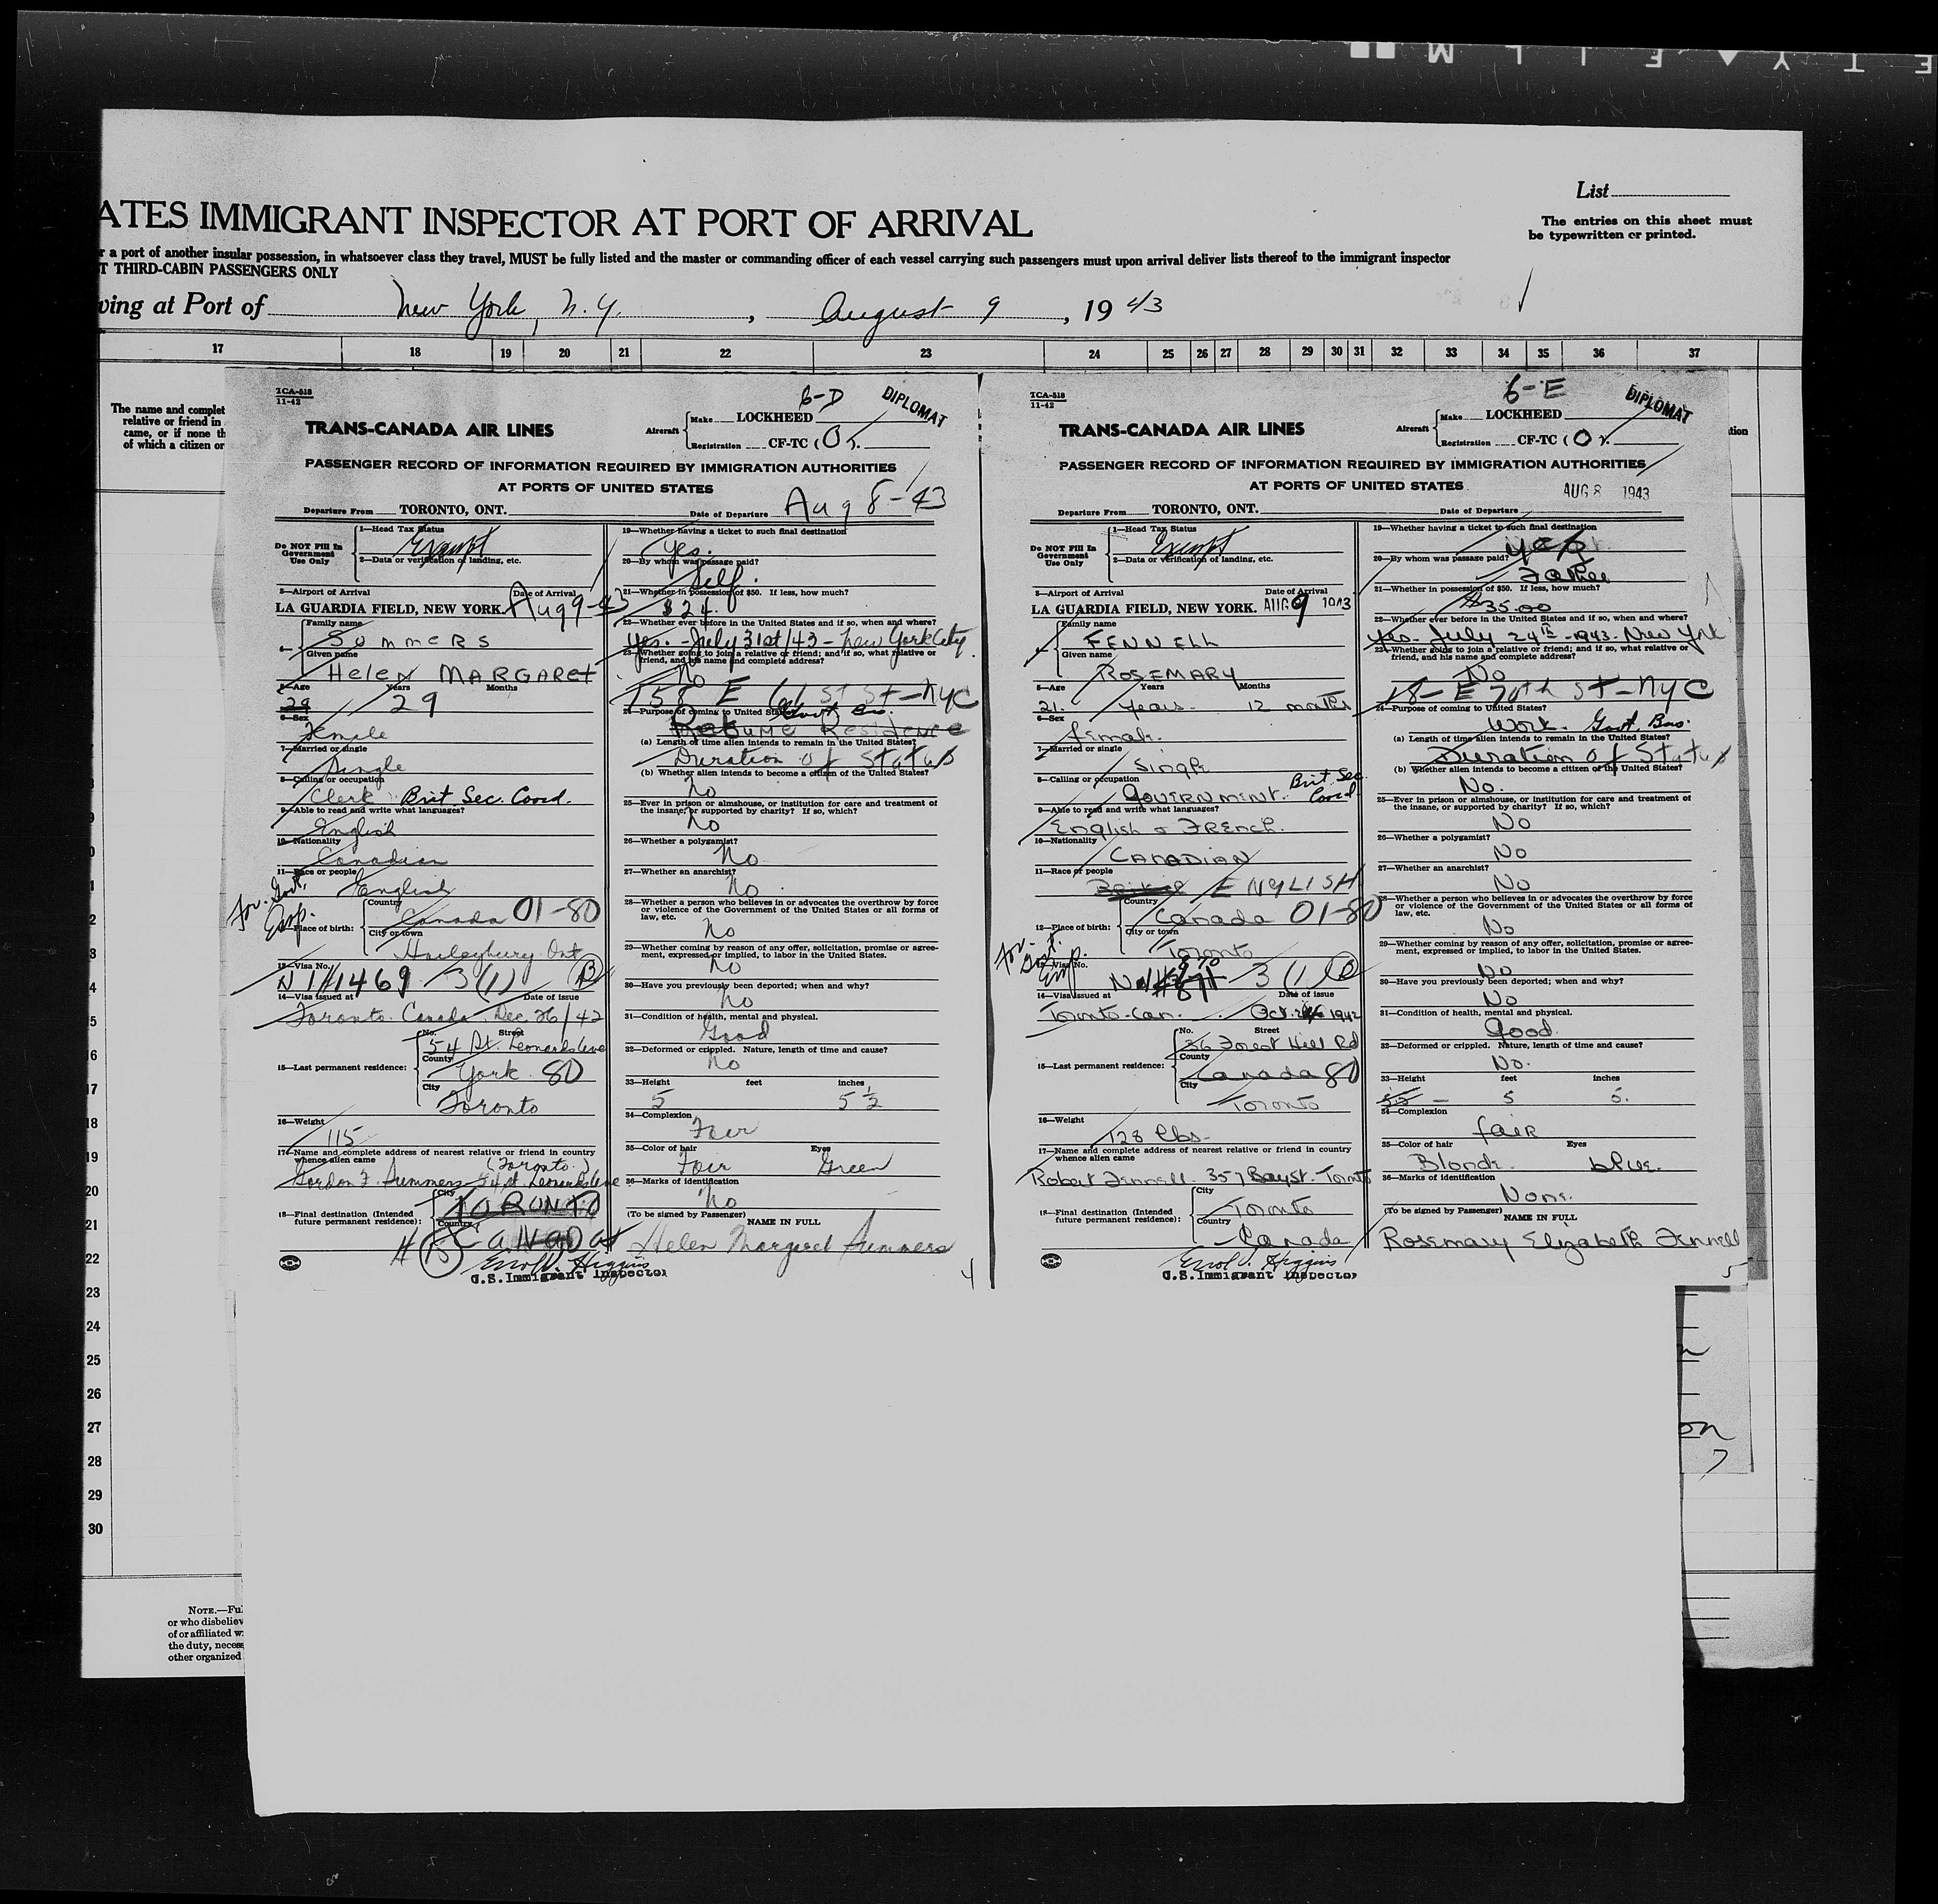 List
ATES IMMIGRANT INSPECTOR AT PORT OF ARRIVAL
The entries on this sheet must
be typewritten or printed.
r a port of another insular possession, in whatsoever class they travel, MUST be fully listed and the master or commanding officer of each vessel carrying such passengers must upon arrival deliver lists thereof to the immigrant inspector
T THIRD-CABIN PASSENGERS ONLY
ving at Port of New York, N.Y. , August 9 , 19 43
17 18 19 20 21 22 23 24 25 26 27 28 29 30 31 32 33 34 35 36 37
The name and complet
relative or friend in
came, or if none th
of which a citizen or
TCA-518
11-42
6-D
DIPLOMAT
TRANS-CANADA AIR LINES
Aircraft
Make LOCKHEED
Registration CF-TC (O).
PASSENGER RECORD OF INFORMATION REQUIRED BY IMMIGRATION AUTHORITIES
AT PORTS OF UNITED STATES
Departure From TORONTO, ONT. Date of Departure Aug 8-43
Do NOT Fill In
Government
Use Only
1—Head Tax Status
Exempt
2—Data or verification of landing, etc.
3—Airport of Arrival Date of Arrival
LA GUARDIA FIELD, NEW YORK. Aug 9-43
4— Family name
SUMMERS
Given name
Helen MARGARET
5—Age Years Months
29 29
6—Sex
Female
7—Married or single
Single
8—Calling or occupation
Clerk Brit. Sec. Coord.
9—Able to read and write what languages?
English
10—Nationality
Canadian
11—Race or people
English
For. Govt. Emp.
12—Place of birth:
Country
Canada 01-80
City or town
Haileybury Ont
13—Visa No.
N 1/1469 3(1) B
14—Visa issued at Date of issue
Toronto Canada Dec 26/42
15—Last permanent residence:
No. Street
54 St. Leonards Ave
County
York 80
City
Toronto
16—Weight
115
17—Name and complete address of nearest relative or friend in country
whence alien came
(Toronto)
Gordon F Summers 54 St. Leonards Ave
18—Final destination (Intended
future permanent residence):
City
TORONTO
Country
U.S. Immigrant Inspector
19—Whether having a ticket to such final destination
Yes.
20—By whom was passage paid?
Self.
21—Whether in possession of $50. If less, how much?
$24.
22—Whether ever before in the United States and if so, when and where?
Yes. - July 31st/43 - New York City
23—Whether going to join a relative or friend; and if so, what relative or
friend, and his name and complete address?
No
158 E 61 ST ST - NYC
24—Purpose of coming to United States?
Govt Bus.
Resume RESIDENCE
(a) Length of time alien intends to remain in the United States?
Duration of Status
(b) Whether alien intends to become a citizen of the United States?
No
25—Ever in prison or almshouse, or institution for care and treatment of
the insane, or supported by charity? If so, which?
No
26—Whether a polygamist?
No
27—Whether an anarchist?
No
28—Whether a person who believes in or advocates the overthrow by force
or violence of the Government of the United States or all forms of
law, etc.
No
29—Whether coming by reason of any offer, solicitation, promise or agree-
ment, expressed or implied, to labor in the United States.
No
30—Have you previously been deported; when and why?
No
31—Condition of health, mental and physical.
Good
32—Deformed or crippled. Nature, length of time and cause?
No
33—Height feet inches
5 5 ½
34—Complexion
Fair
35—Color of hair Eyes
Fair Green
36—Marks of identification
No
(To be signed by Passenger)
NAME IN FULL
Helen Margaret Summers
4
TCA-518
11-42
6-E
DIPLOMAT
TRANS-CANADA AIR LINES
Aircraft
Make LOCKHEED
Registration CF-TC (O).
PASSENGER RECORD OF INFORMATION REQUIRED BY IMMIGRATION AUTHORITIES
AT PORTS OF UNITED STATES
AUG 8 1943
Departure From TORONTO, ONT. Date of Departure
Do NOT Fill In
Government
Use Only
1—Head Tax Status
Exempt
2—Data or verification of landing, etc.
3—Airport of Arrival Date of Arrival
LA GUARDIA FIELD, NEW YORK. AUG 9 1943
4— Family name
FENNELL
Given name
ROSEMARY
5—Age Years Months
21. Years. 12 months
6—Sex
female.
7—Married or single
Single
8—Calling or occupation
GOVERNMENT. Brit. Sec. Coord.
9—Able to read and write what languages?
English & FRENCH.
10—Nationality
CANADIAN
11—Race or people
ENGLISH
For. Govt. Emp.
12—Place of birth:
Country
Canada 01-80
City or town
Toronto
13—Visa No.
3 (1)
14—Visa issued at Date of issue
Toronto-Can. Oct. 1942
15—Last permanent residence:
No. Street
36 Forest Hill Rd
County
Canada 80
City
Toronto
16—Weight
128 lbs-
17—Name and complete address of nearest relative or friend in country
whence alien came
Robert Fennell. 357 Bay st. Toronto
18—Final destination (Intended
future permanent residence):
City
Toronto
Country
Canada
U.S. Immigrant Inspector
19—Whether having a ticket to such final destination
yes
20—By whom was passage paid?
Father
21—Whether in possession of $50. If less, how much?
$35.00
22—Whether ever before in the United States and if so, when and where?
Yes- July 24th -1943- New York
23—Whether going to join a relative or friend; and if so, what relative or
friend, and his name and complete address?
No
18- E 70th ST-NYC
24—Purpose of coming to United States?
Work. Govt. Bus.
(a) Length of time alien intends to remain in the United States?
Duration of Status
(b) Whether alien intends to become a citizen of the United States?
No.
25—Ever in prison or almshouse, or institution for care and treatment of
the insane, or supported by charity? If so, which?
No
26—Whether a polygamist?
No
27—Whether an anarchist?
No
28—Whether a person who believes in or advocates the overthrow by force
or violence of the Government of the United States or all forms of
law, etc.
No
29—Whether coming by reason of any offer, solicitation, promise or agree-
ment, expressed or implied, to labor in the United States.
No
30—Have you previously been deported; when and why?
No
31—Condition of health, mental and physical.
good.
32—Deformed or crippled. Nature, length of time and cause?
No.
33—Height feet inches
5 5.
34—Complexion
fair
35—Color of hair Eyes
Blonde. blue.
36—Marks of identification
None.
(To be signed by Passenger)
NAME IN FULL
Rosemary Elizabeth Fennell
5
22
23
24
25
26
27
28
29
30
on
7
NOTE.—Fu
or who disbeliev
of or affiliated w
the duty, neces
other organized